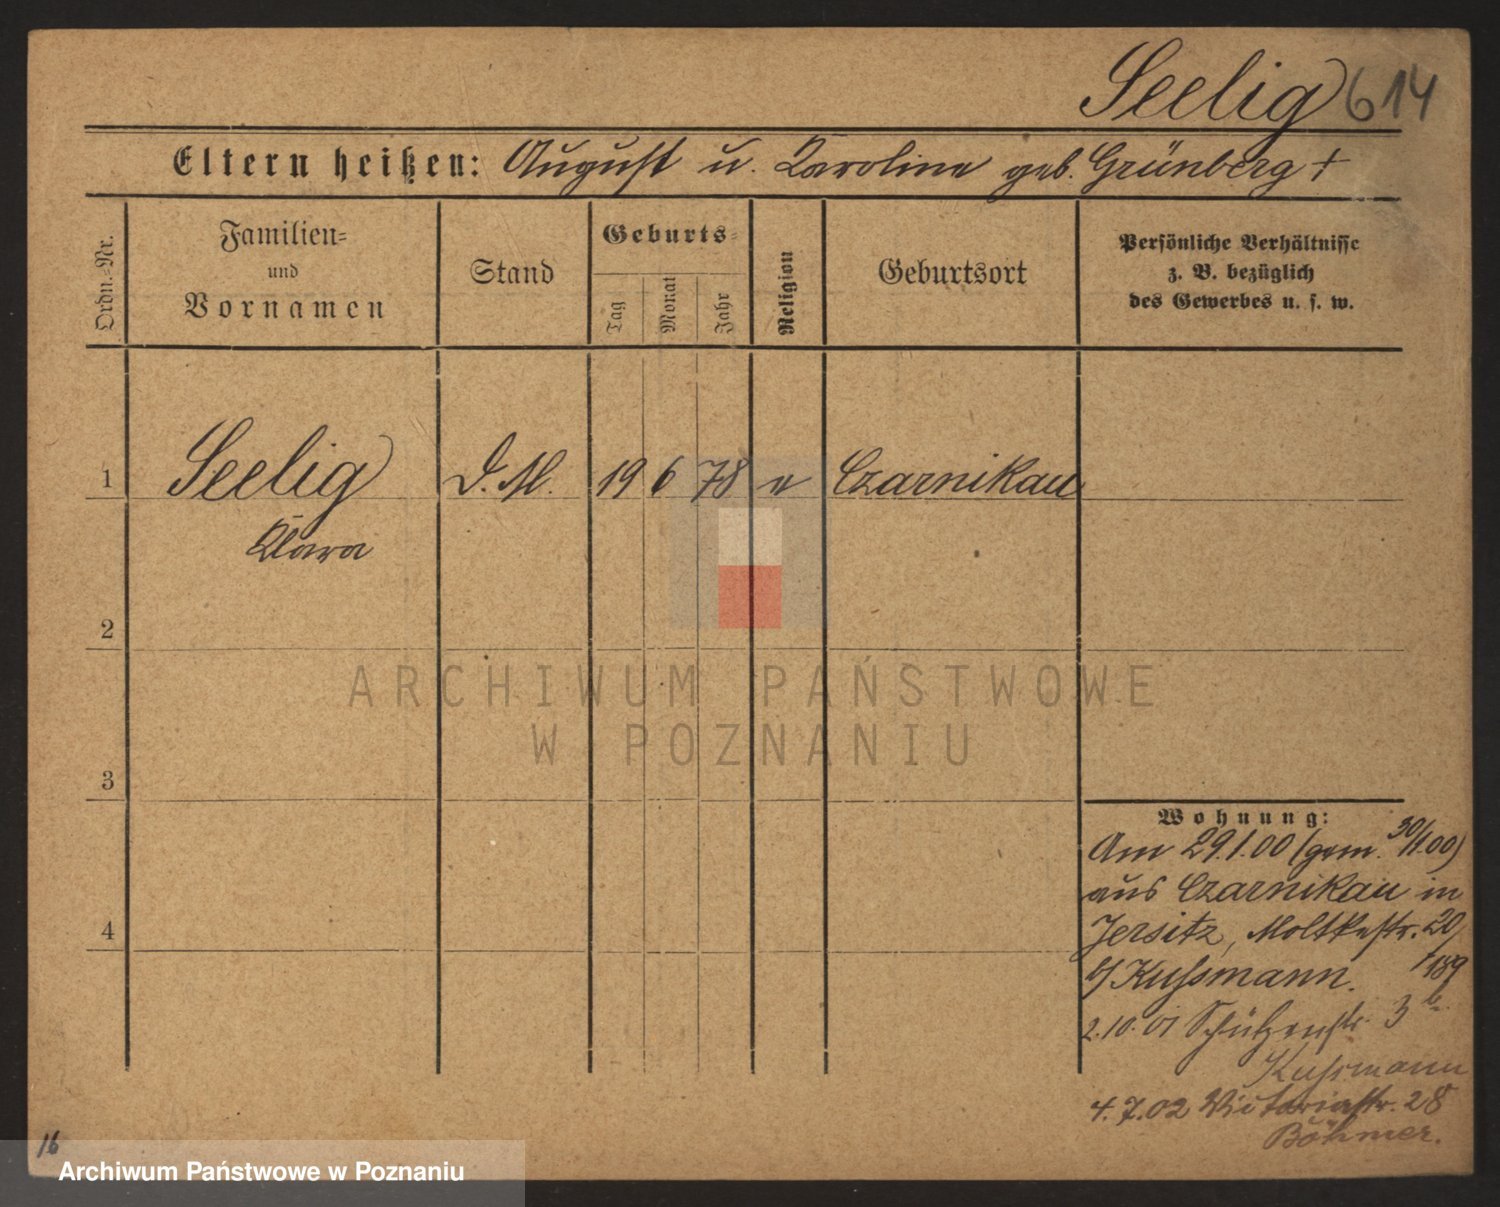 Seelig 614
Eltern heißen: August u. Karoline geb. Grünberg +
Ordn.-Nr.
Familien-
und
Vornamen
Stand
Geburts-
Tag
Monat
Jahr
Religion
Geburtsort
Persönliche Verhältnisse
z. B. bezüglich
des Gewerbes u. s. w.
1 Seelig D. M. 19 6 78 e Czarnikau
Klara
2
3
4
Wohnung:
Am 29.1.00 (gem. 30/1.00)
aus Czarnikau in
Jersitz, Moltkestr. 20,
b/ Kussmann. 189
2.10.01 Schützenstr. 3 b.
Kussmann
4.7.02 Victoriastr. 28
Böhmer.
16
ARCHIWUM PAŃSTWOWE
W POZNANIU
Archiwum Państwowe w Poznaniu